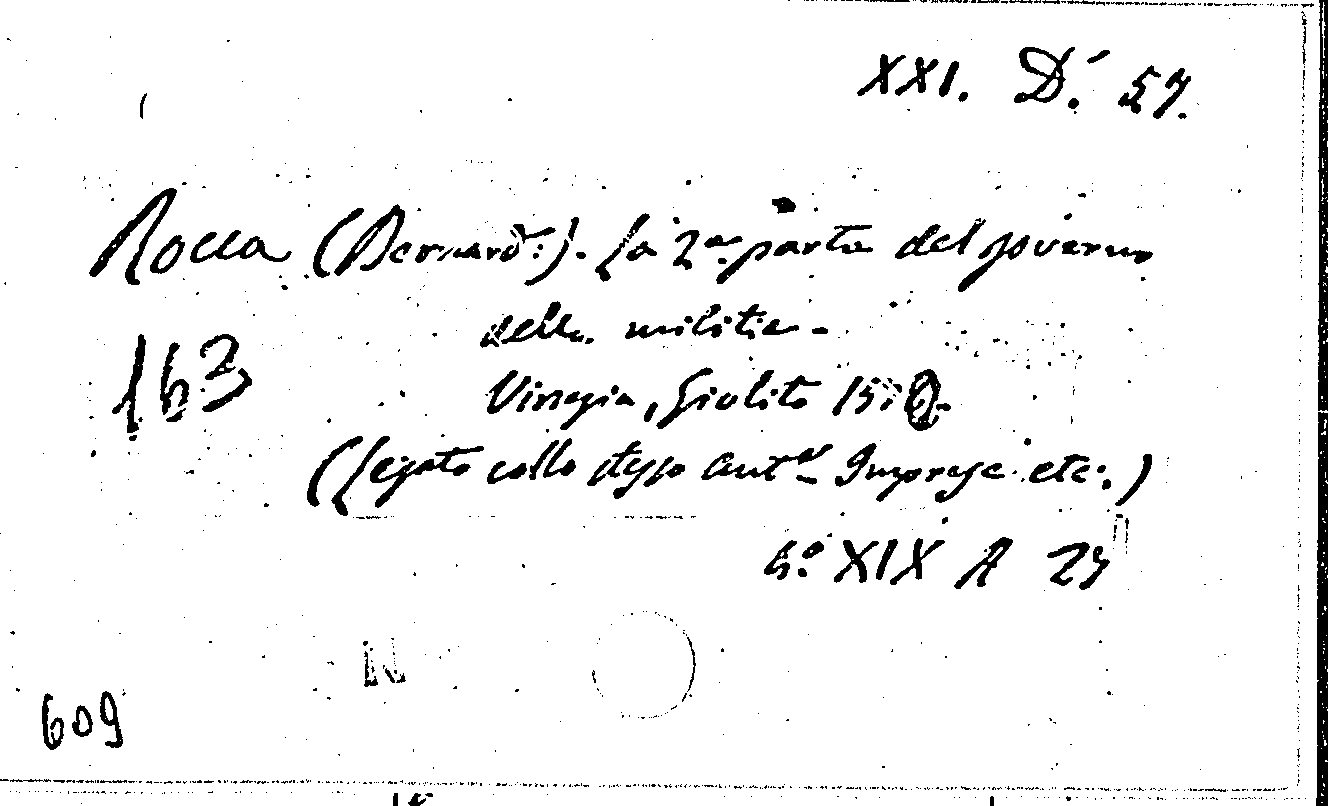 XXI. D'. 57.
Rocca (Bernard:). La 2a parte del governo
della militia -
163
Vinegia, Giolito 1570.
(Legato collo stesso autr Imprese etc.)
4.o XIX A 27
N
609